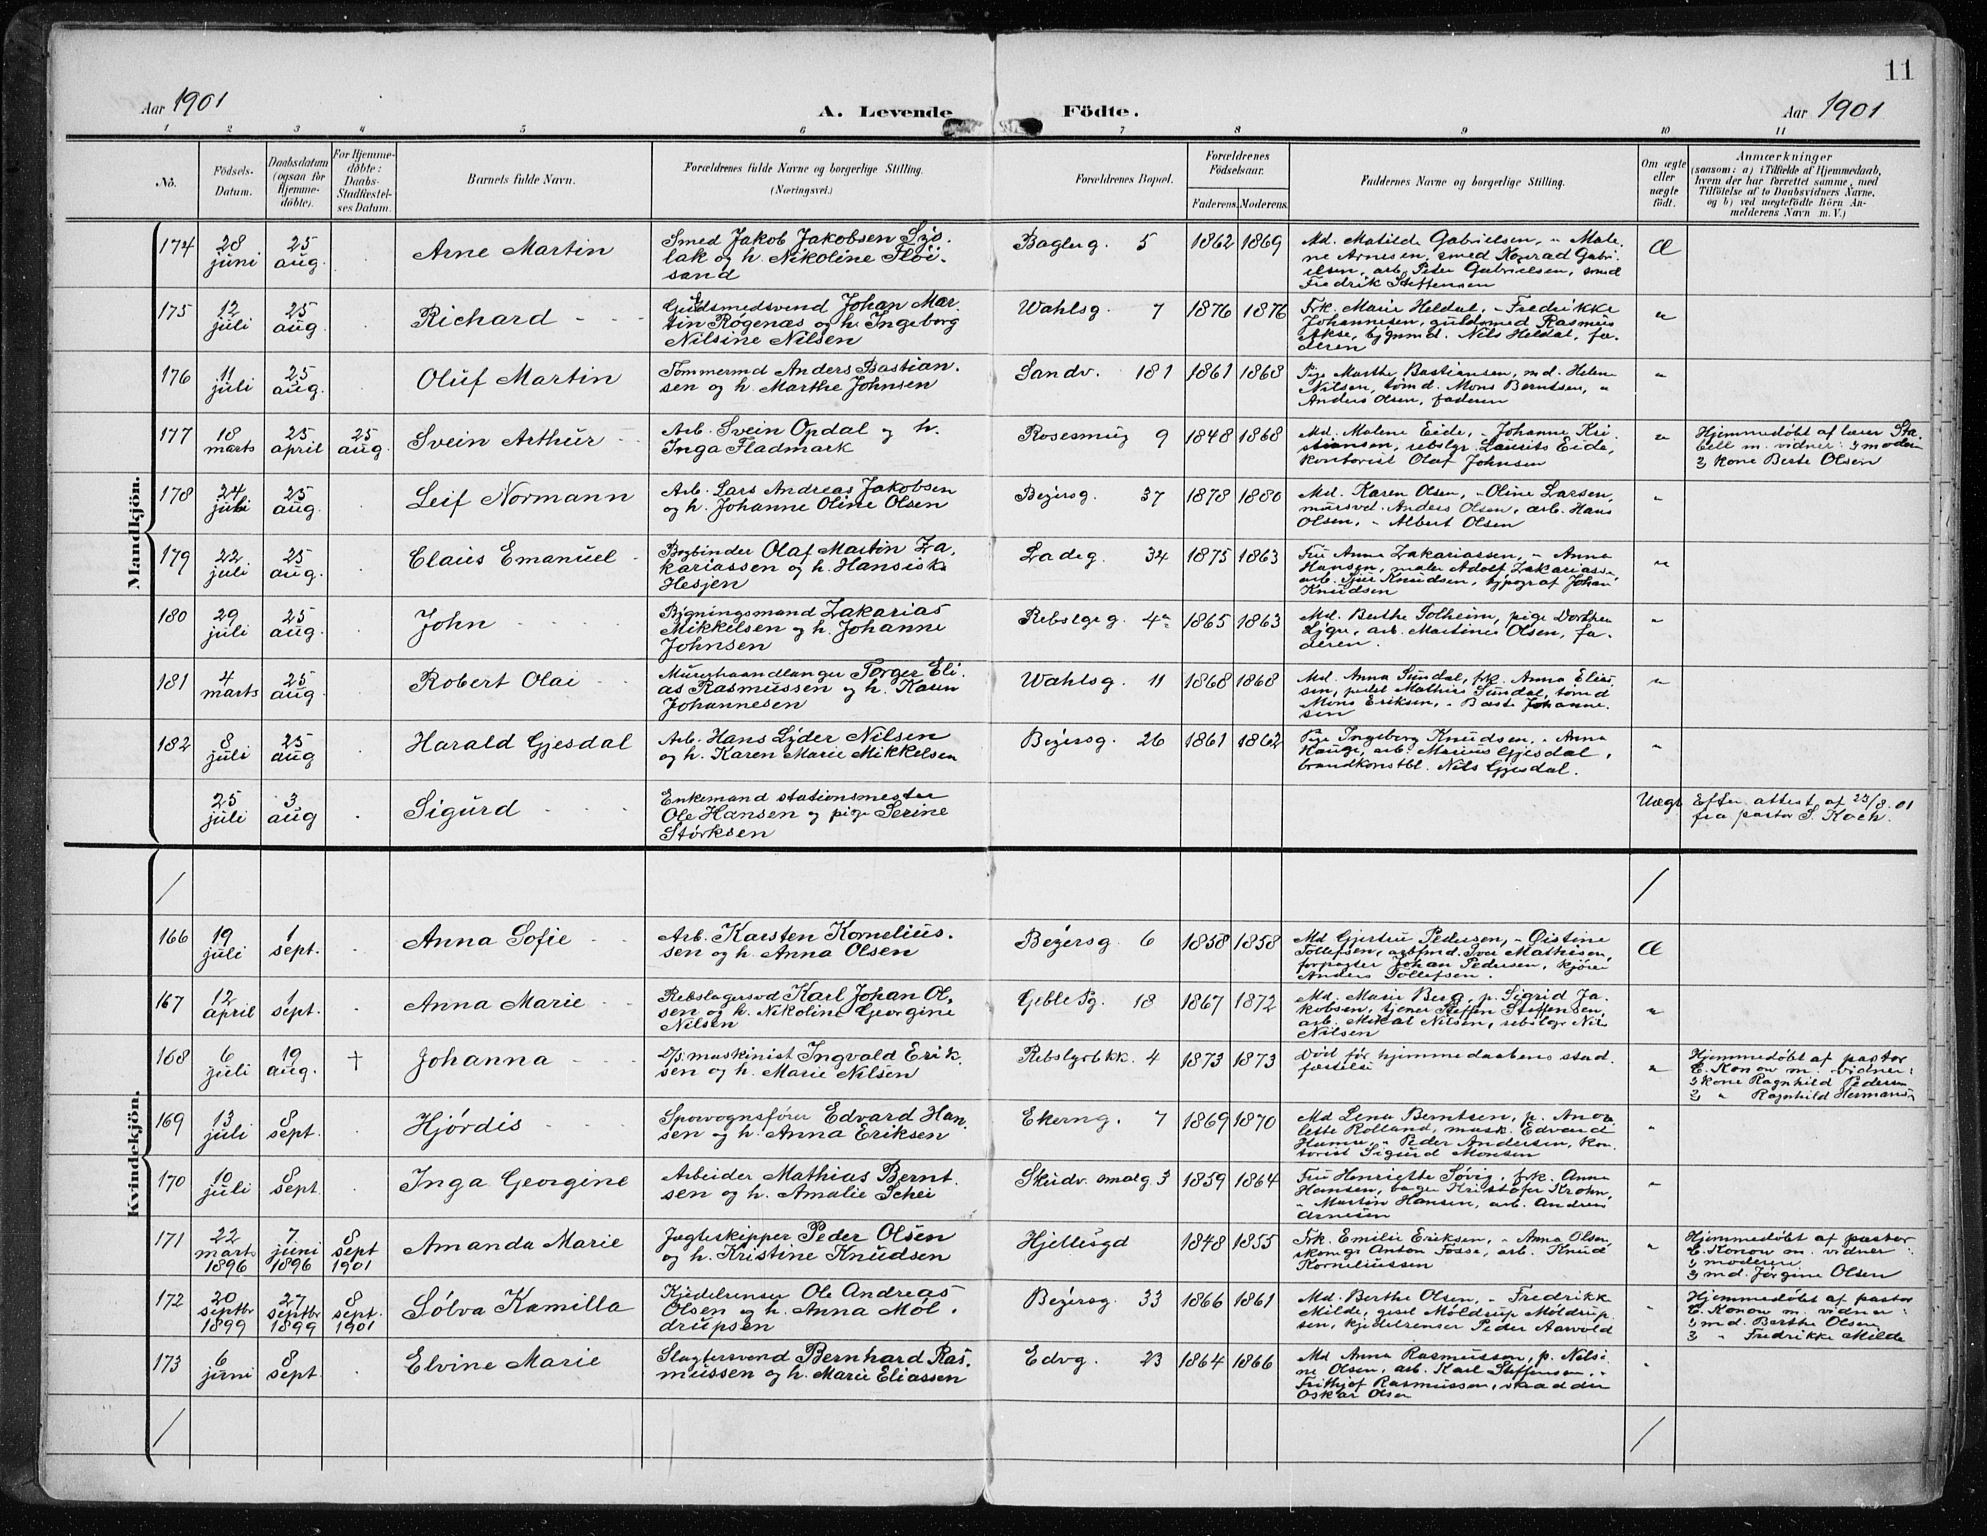 11
Aar 1901
A. Levende Födte.
Aar 1901
1 2 3 4 5 6 7 8 9 10 11
No.
Födsels-
Datum.
Daabsdatum
(ogsaa for
Hjemme-
döbte).
For Hjemme-
döbte:
Daabs-
Stadfæstel-
ses Datum.
Barnets fulde Navn.
Forældrenes fulde Navne og borgerlige Stilling.
(Næringsvei.)
Forældrenes Bopæl.
Forældrenes
Födselsaar.
Faderens. Moderens.
Faddernes Navne og borgerlige Stilling.
Om ægte
eller
uægte
födt.
Anmærkninger
(saasom: a) i Tilfælde af Hjemmedaab,
hvem der har forrettet samme, med
Tilföielse af to Daabsvidners Navne,
og b) ved uegtefödte Börn An-
melderens Navn m. V.)
Mandkjön.
174
28
juni
25
aug.
Arne Martin
Smed Jakob Jakobsen
lak og h. Nikoline Fløi-
sand
Baglerg. 5
1862 1869
Md. Matilde Gabrielsen, " Male
ne Arnesen, smed Konrad Gabri
elsen, arb. Peder Gabrielsen, smed
Fredrik Steffensen
Æ
175
12
juli
25
aug.
Richard
Guldsmedsvend Johan Mar-
tin Røgenæs og h. Ingeborg
Nilsine Nilsen
Wahlsg. 7
1876 1876
Frk. Marie Heldal, " Fredrikke
Johannesen, guldsmed Rasmus
Askse, bygnmd. Nils Heldal, fa-
deren
"
176
11
juli
25
aug.
Oluf Martin
Tømmermd Anders Bastian-
sen og h. Marthe Johnsen
Sandv. 181
1861 1868
Pige Marthe Bastiansen, md. Helene
Nilsen, tømd. Mons Berntsen, "
Anders Olsen, faderen
"
177
18
marts
25
april
25
aug.
Svein Arthur
Arb. Svein Opdal og h.
Inga Fladmark
Rosesmug 9
1848 1868
Md. Malene Eide, " Johanne Kri
stiansen, rebslgr. Laurits Eide,
kontorist Olaf Johnsen
"
Hjemmedøbt af lærer Sta-
bell m. vidner: moder
kone Berte Olsen
178
24
juli
25
aug.
Leif Normann
Arb. Lars Andreas Jakobsen
og h. Johanne Oline Olsen
Beyersg. 37
1878 1880
Md. Karen Olsen, " Oline Larsen,
mursvd. Anders Olsen, arb. Hans
Olsen, " Albert Olsen
"
179
22
juli
25
aug.
Claus Emanuel
Bogbinder Olaf Martin Za-
kariassen og h. Hansiske
Hesjen
Ladeg. 34
1875 1863
Fru Anna Zakariassen, " Anna
Hansen, maler Adolf Zakariass.
arb. Sjur Knudsen, typograf Johan
Knudsen
"
180
29
juli
25
aug.
John
Bygningsmand Zakarias
Mikkelsen og h. Johanne
Johnsen
Rebslgrg. 4a
1865 1863
Md. Berthe Solheim, pige Dorthea
Lygre, arb. Martinus Olsen, fa-
deren.
"
181
4
marts
25
aug.
Robert Olai
Murerhaandlanger Torger Eli
as Rasmussen og h. Karen
Johannesen
Wahlsg. 11
1868 1868
Md. Anna Sundal, frk. Anna Elias
sen, Mathias Sundal, tømd
Mons Eriksen, " Johanne
sen
"
182
8
juli
25
aug
Harald Gjesdal
Arb. Hans Lyder Nilsen
og h. Karen Marie Mikkelsen
Beyersg. 26
1861 1862
Pige Ingeborg Knudsen, " Anna
Hauge, arb. Marius Gjesdal,
brandkonstbl. Nils Gjesdal.
"
25
juli
3
aug
Sigurd
Enkemand stationsmester
Ole Hansen og pige Serine
Størksen
Uægt
Efter attest af 23/8. 01
fra pastor S. Koch.
Kvindekjön.
166
19
juli
1
sept.
Anna Sofie
Arb. Karsten Kornelius-
sen og h. Anna Olsen
Beyersg. 6
1858 1858
Md Gjertru Pedersen, " Øistine
Tollefsen, arbfmd. Iver Mathisen,
forpagter Johan Pedersen, kjører
Anders Tollefsen.
Æ
167
12
april
1
sept.
Anna Marie
Rebslagersvd Karl Johan Ol-
sen og h. Nikoline Georgine
Nilsen
Geble Pg. 18
1867 1872
Md. Marie Berg, p. Sigrid Ja-
kobsen, tjener Steffen Steffensen,
arb. Mikal Nilsen, rebslgr Nils
Nilsen
"
168
6
juli
19
aug.
†
Johanna
D/s maskinist Ingvald Erik-
sen og h. Marie Nilsen
Rebslgrbkk. 4
1873 1873
Død før hjemmedaabens stad
fæstelse
"
Hjemmedøbt af pastor
E. Konow m. vidner:
kone Ragnhild Pedersen
" Ragnhild Hermans
169
13
juli
8
sept.
Hjørdis
Sporvognsfører Edvard Han-
sen og h. Anna Eriksen
Ekerng. 7
1869 1870
Md Lena Berntsen, p. Ano
lette Rolland, mask. Edvard
" Peder Andersen, kon
torist Sigurd Monsen
"
170
10
juli
8
sept
Inga Georgine
Arbeider Mathias Bernt-
sen og h. Amalie Schei
Skudv. smalg 3
1859 1864
Fru Henriette Søvig, frk. Anna
Hansen, bager Kristofer Krohn,
" Martin Hansen, arb. Andreas
Arnesen
"
171
22
marts
1896
7
juni
1896
8
sept
1901
Amanda Marie
Jagteskipper Peder Olsen
og h. Kristine Knudsen
Hjeltesgd
1848 1855
Frk. Emilie Eriksen, " Anna Olsen,
skomgr Anton Fosse, arb. Knud
Korneliussen
"
Hjemmedøbt af pastor
E. Konow m. vidner:
moderen
md. Jørgine Olsen
172
20
septbr
1899
27
septbr
1899
8
sept.
1901
Sølva Kamilla
Kjedelrenser Ole Andreas
Olsen og h. Anna Mol-
drupsen
Beyersg. 33
1866 1861
Md. Berthe Olsen, " Fredrikke
Milde, gesel Moldrup Moldrup
sen, kjedelrenser Peder Aarvold
"
Hjemmedøbt af pastor
E. Konow m. vidner:
md. Berthe Olsen
" Fredrikke Milde
173
6
juni
8
sept.
Elvine Marie
Slagtersvend Bernhard Ras-
mussen og h. Marie Eliassen
Edvg. 23
1864 1866
Md Anna Rasmussen, p. Nilsi
ne Olsen, arb. Karl Steffensen, "
Frithjof Rasmussen, skrædder
Oskar Olsen
"